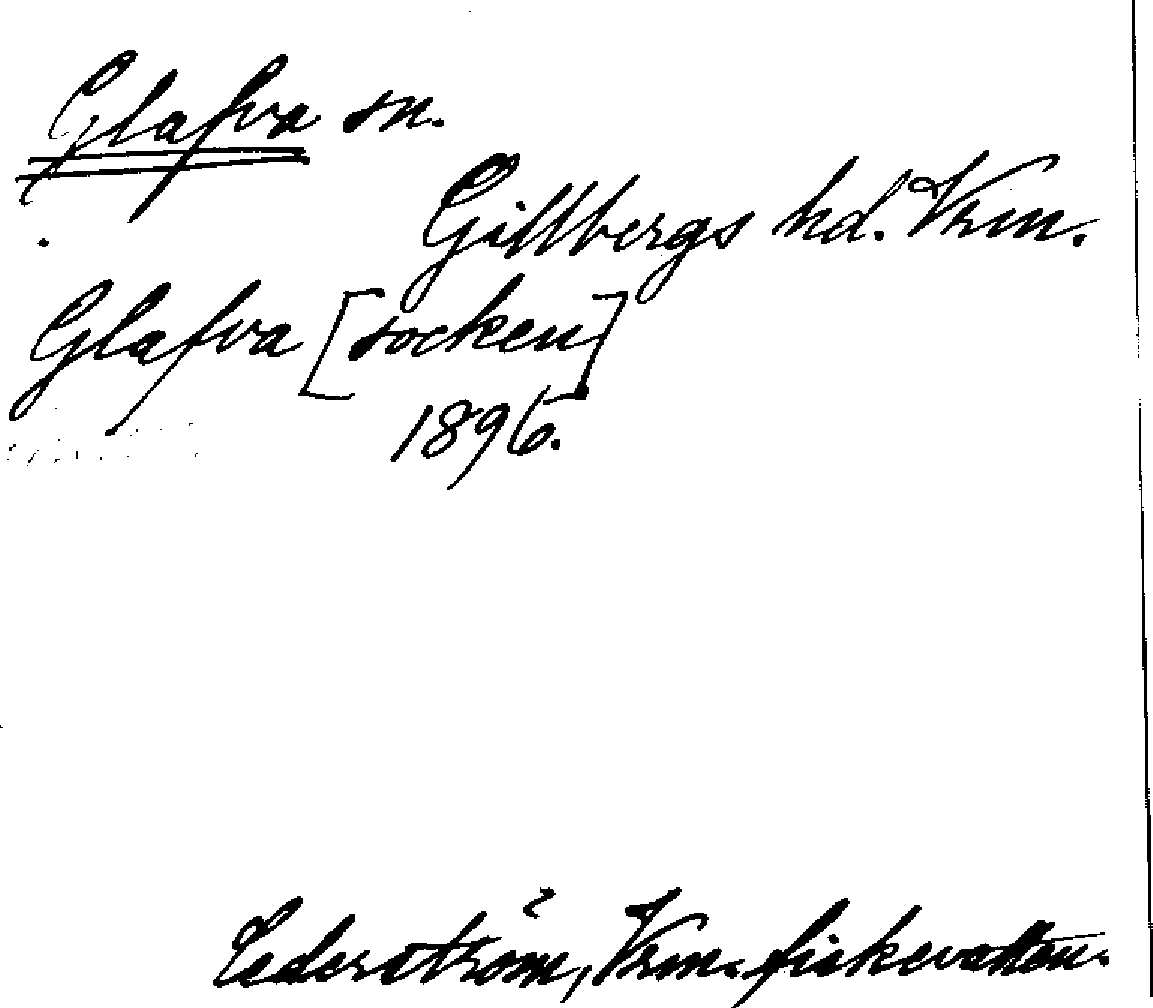 Glafva sn.
Gillbergs hd. Vrm.
Glafva [socken]
1896.
Cederström, Vrm. fiskevatten.